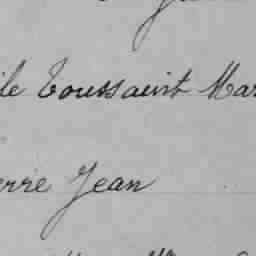 ile Toussaint Mar
erre Jean